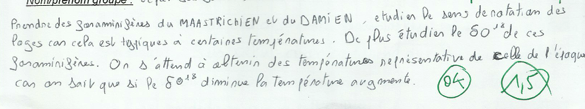 Nom/prénom groupe :
Prendre des foraminifères du MAASTRICHIEN et du DAMIEN, étudier le sens de rotation des
loges car cela est typiques à certaines températures. De plus étudier le δO¹⁸ de ces
foraminifères. On s'attend à obtenir des températures représentative de celle de l'époque
car on sait que si le δO¹⁸ diminue la température augmente.
04
1,5